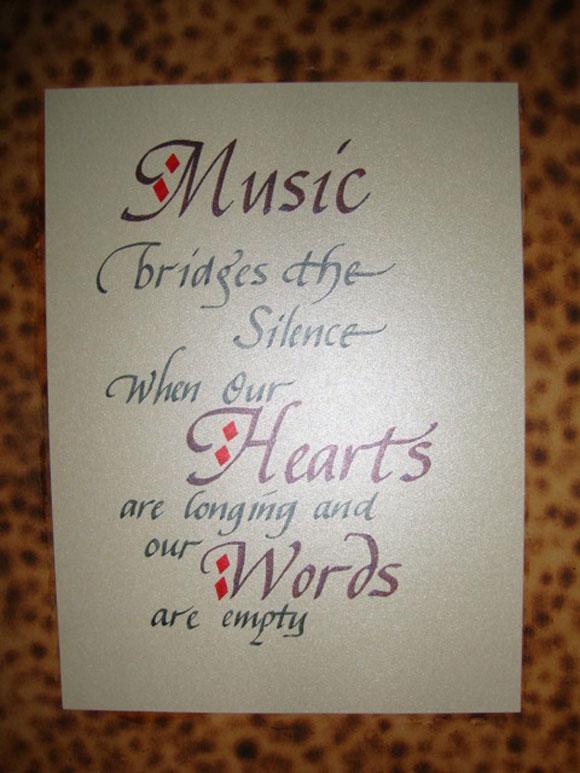 Music
bridges the
Silence
When Our
Hearts
are longing and
our
Words
are empty